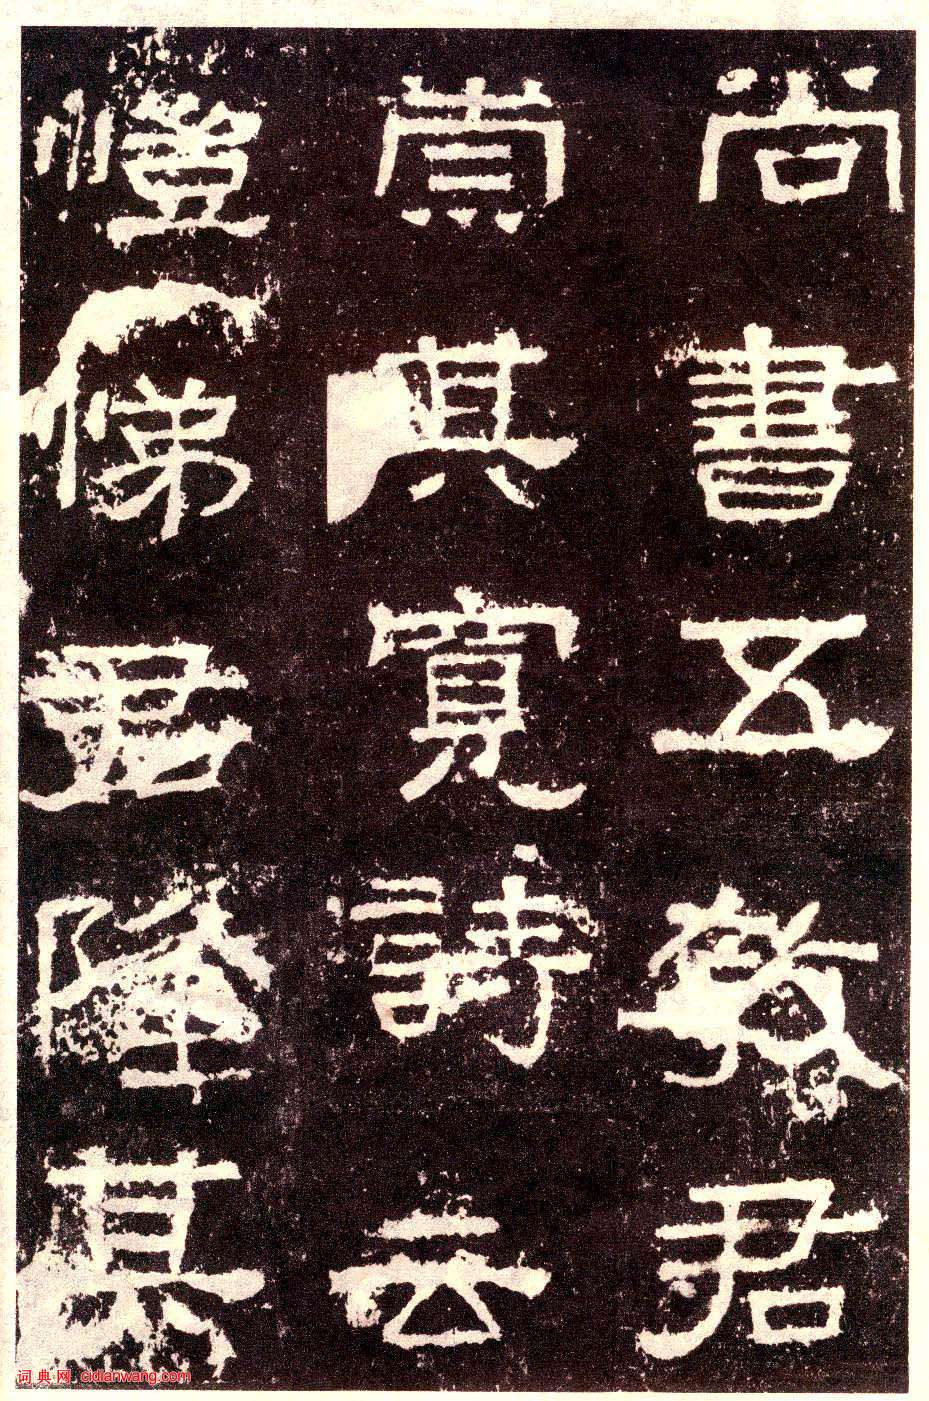 尚書五教君
崇其寬詩云
愷悌君隆其
词典网 cidianwang.com